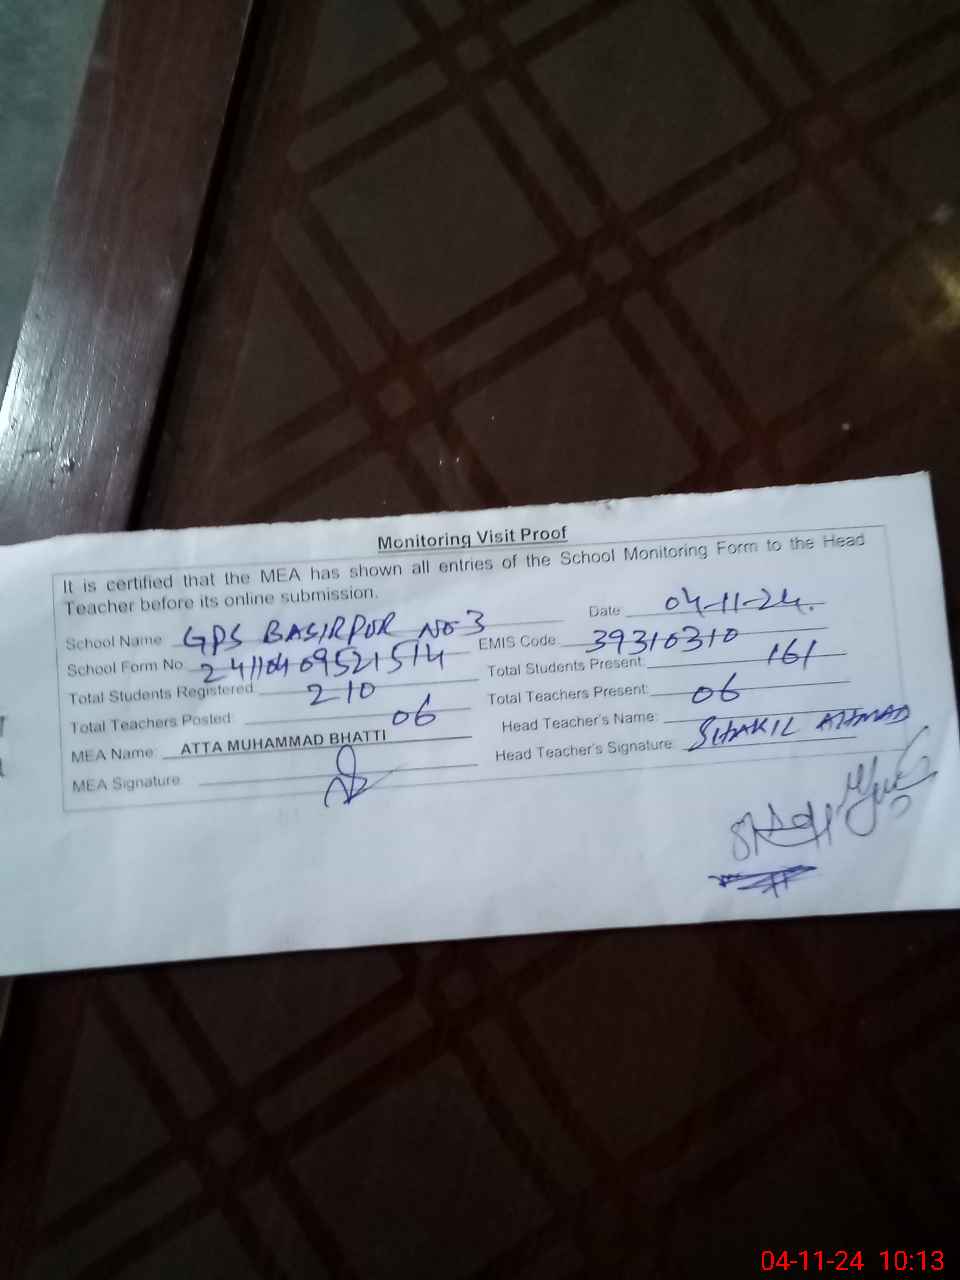 Monitoring Visit Proof
It is certified that the MEA has shown all entries of the School Monitoring Form to the Head
Teacher before its online submission.
School Name GPS BASIRPUR No-3 Date 04-11-24.
School Form No. 24110409521514 EMIS Code: 39310310
Total Students Registered: 210 Total Students Present: 161
Total Teachers Posted: 06 Total Teachers Present: 06
MEA Name: ATTA MUHAMMAD BHATTI Head Teacher's Name: SHAKIL AHMAD
MEA Signature: Head Teacher's Signature:
04-11-24 10:13